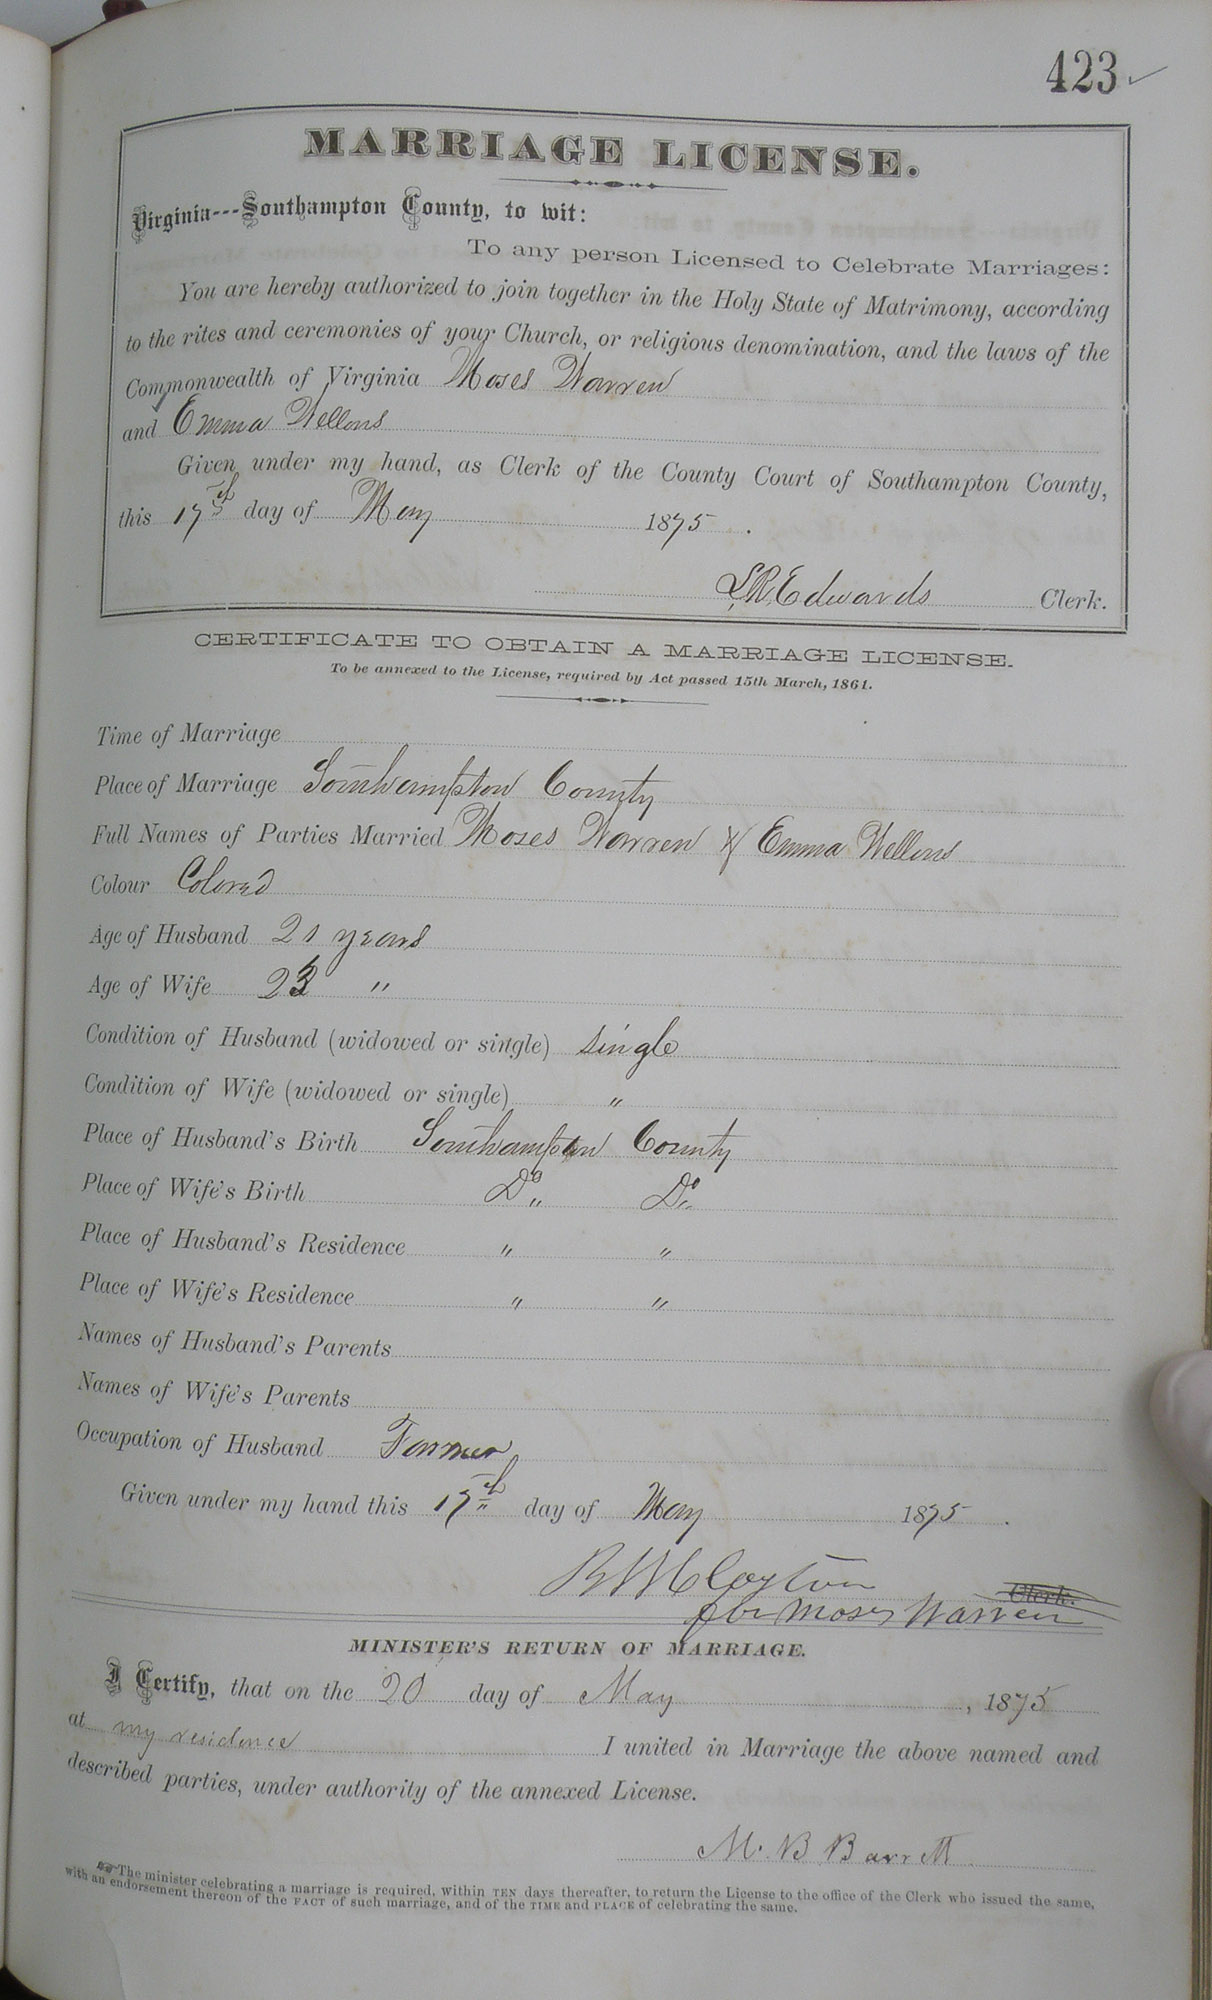 423
MARRIAGE LICENSE.
Virginia---Southampton County, to wit:
To any person Licensed to Celebrate Marriages:
You are hereby authorized to join together in the Holy State of Matrimony, according
to the rites and ceremonies of your Church, or religious denomination, and the laws of the
Commonwealth of Virginia Moses Warren
and Emma Wellons
Given under my hand, as Clerk of the County Court of Southampton County,
this 17th day of May 1875.
L.R. Edwards Clerk.
CERTIFICATE TO OBTAIN A MARRIAGE LICENSE.
To be annexed to the License, required by Act passed 15th March, 1861.
Time of Marriage
Place of Marriage Southampton County
Full Names of Parties Married Moses Warren & Emma Wellons
Colour Colored
Age of Husband 21 years
Age of Wife 23 "
Condition of Husband (widowed or single) single
Condition of Wife (widowed or single) "
Place of Husband's Birth Southampton County
Place of Wife's Birth Do Do
Place of Husband's Residence " "
Place of Wife's Residence " "
Names of Husband's Parents
Names of Wife's Parents
Occupation of Husband Farmer
Given under my hand this 17th day of May 1875.
Clerk.
for Moses Warren
MINISTER'S RETURN OF MARRIAGE.
I Certify, that on the 20 day of May, 1875
at my residence I united in Marriage the above named and
described parties, under authority of the annexed License.
M. B Barrett
The minister celebrating a marriage is required, within TEN days thereafter, to return the License to the office of the Clerk who issued the same,
with an endorsement thereon of the FACT of such marriage, and of the TIME and PLACE of celebrating the same.